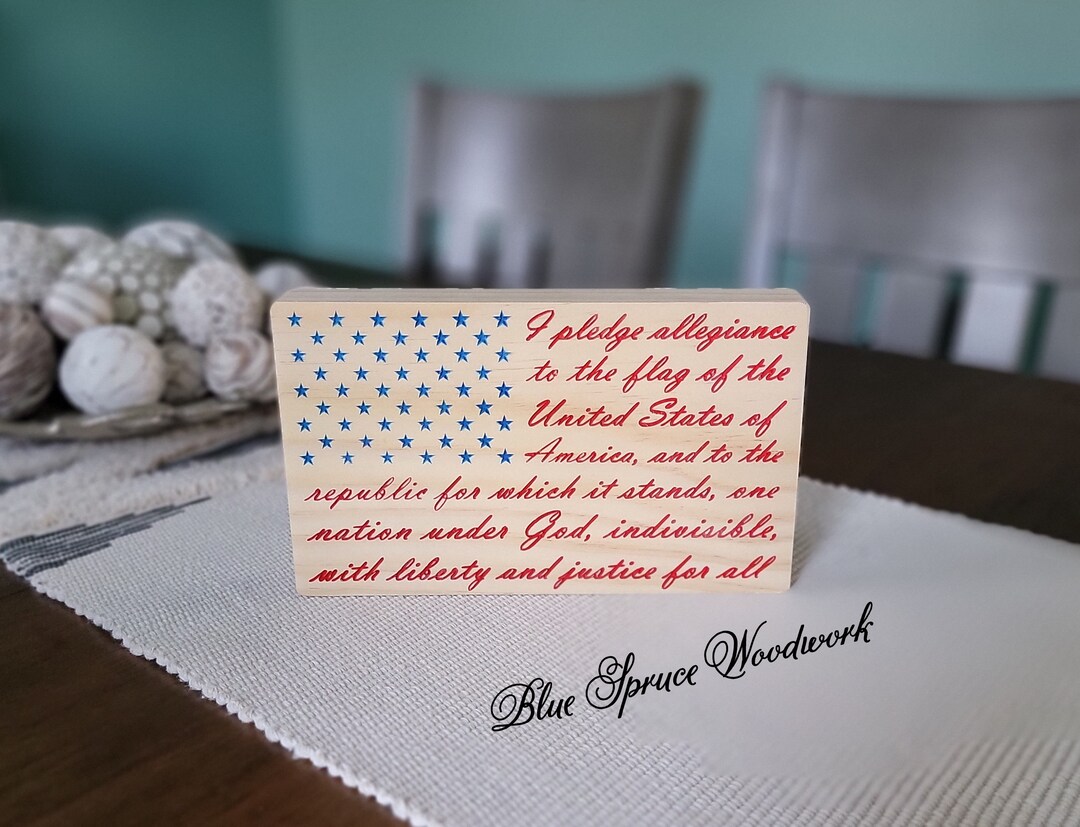 I pledge allegiance
to the flag of the
United States of
America, and to the
republic for which it stands, one
nation under God, indivisible,
with liberty and justice for all
Blue Spruce Woodwork